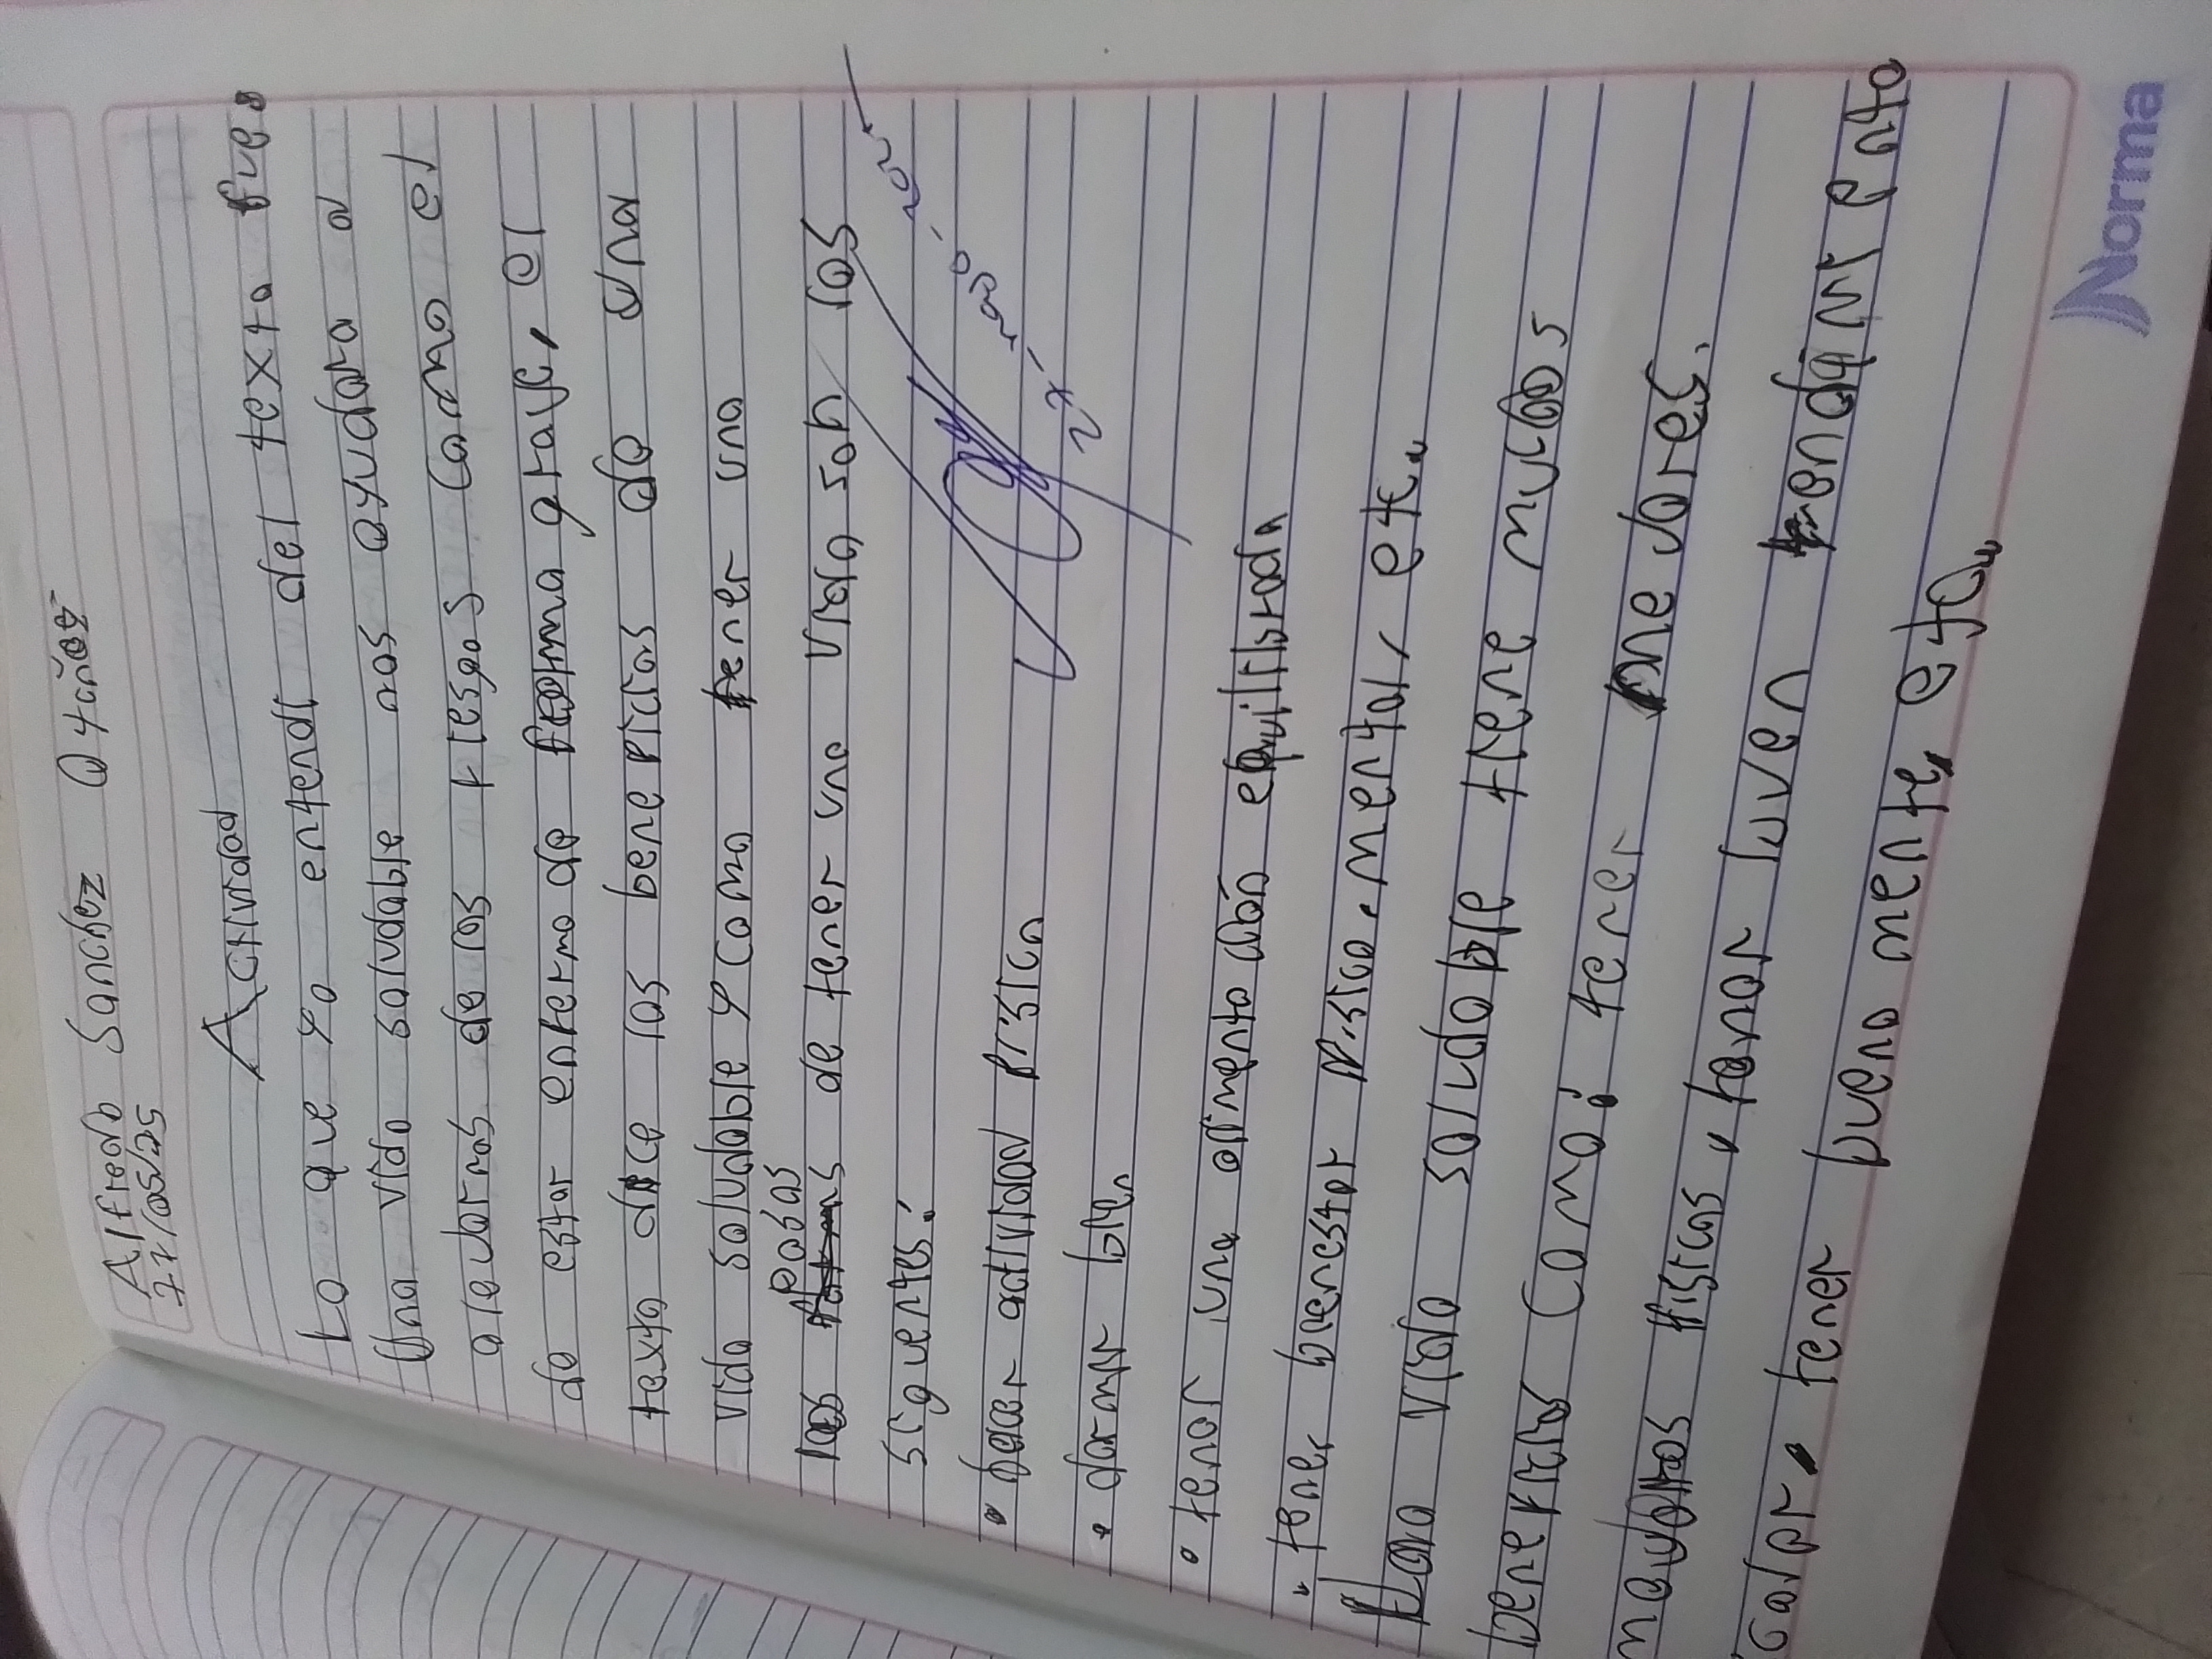 Alfredo Sanchez Otañez
27/05/25
Actividad
Lo que yo entendi del texto fue
Una vida saludable nos ayudara a
alejarnos de los riesgos como el
de estar enfermo de forma grave, el
texto dice los beneficios de una
vida saludable y como tener una
pasos
los de tener una vida son los
siguentes:
• hacer actividad fisica
• dormir bien
• tener una alimentación equilibrada
• tener bienestar fisico, mental, etc.
Una vida saludable tiene muchos
beneficios como: tener
fisicos, tener un
calor, tener buena mente, etc.
Norma